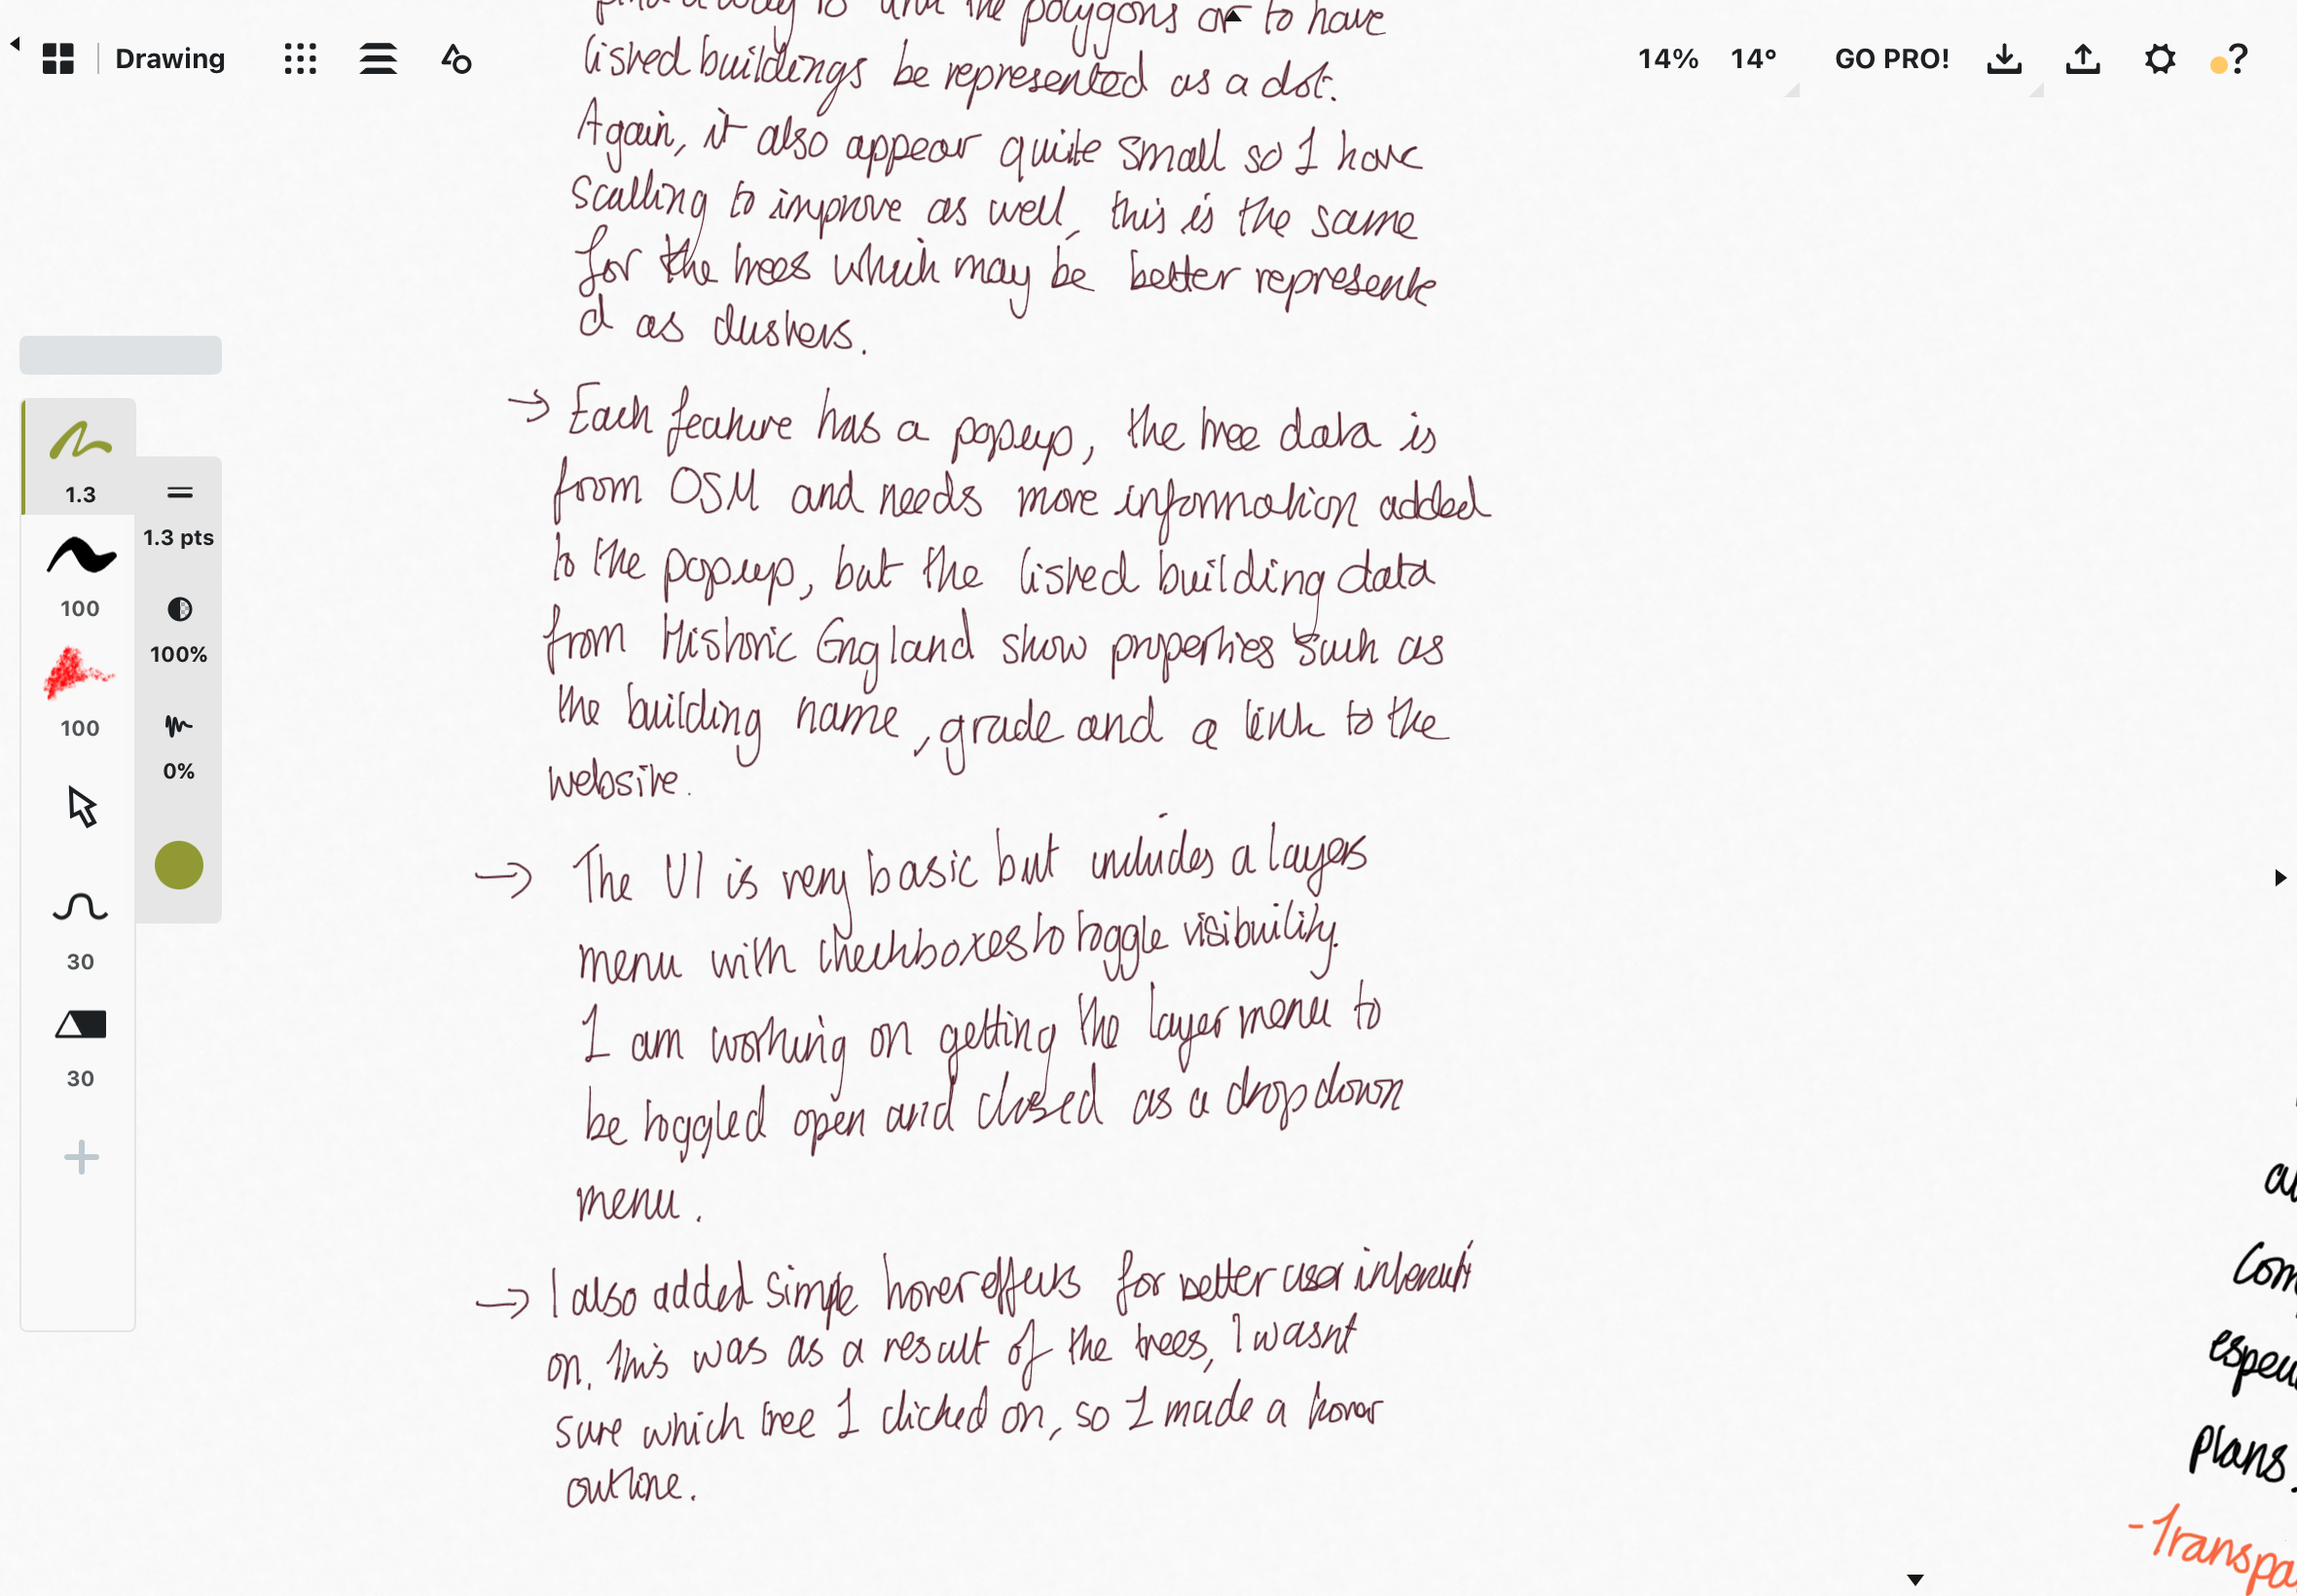 the polygons or to have
Drawing
14% 14° GO PRO! ?
listed buildings be represented as a dot.
Again, it also appear quite small so I have
scalling to improve as well, this is the same
for the trees which may be better represente
d as clusters.
→ Each feature has a popup, the tree data is
from OSM and needs more information added
to the popup, but the listed building data
from Historic England show properties such as
the building name, grade and a link to the
website.
→ The UI is very basic but includes a layers
menu with checkboxes to toggle visibility.
I am working on getting the layer menu to
be toggled open and closed as a dropdown
menu.
→ I also added simple hover effects for better user interacti
on. This was as a result of the trees, I wasnt
sure which tree I clicked on, so I made a hover
outline.
1.3
1.3 pts
100
100%
100
0%
30
30
Com
plans,
- Transpa